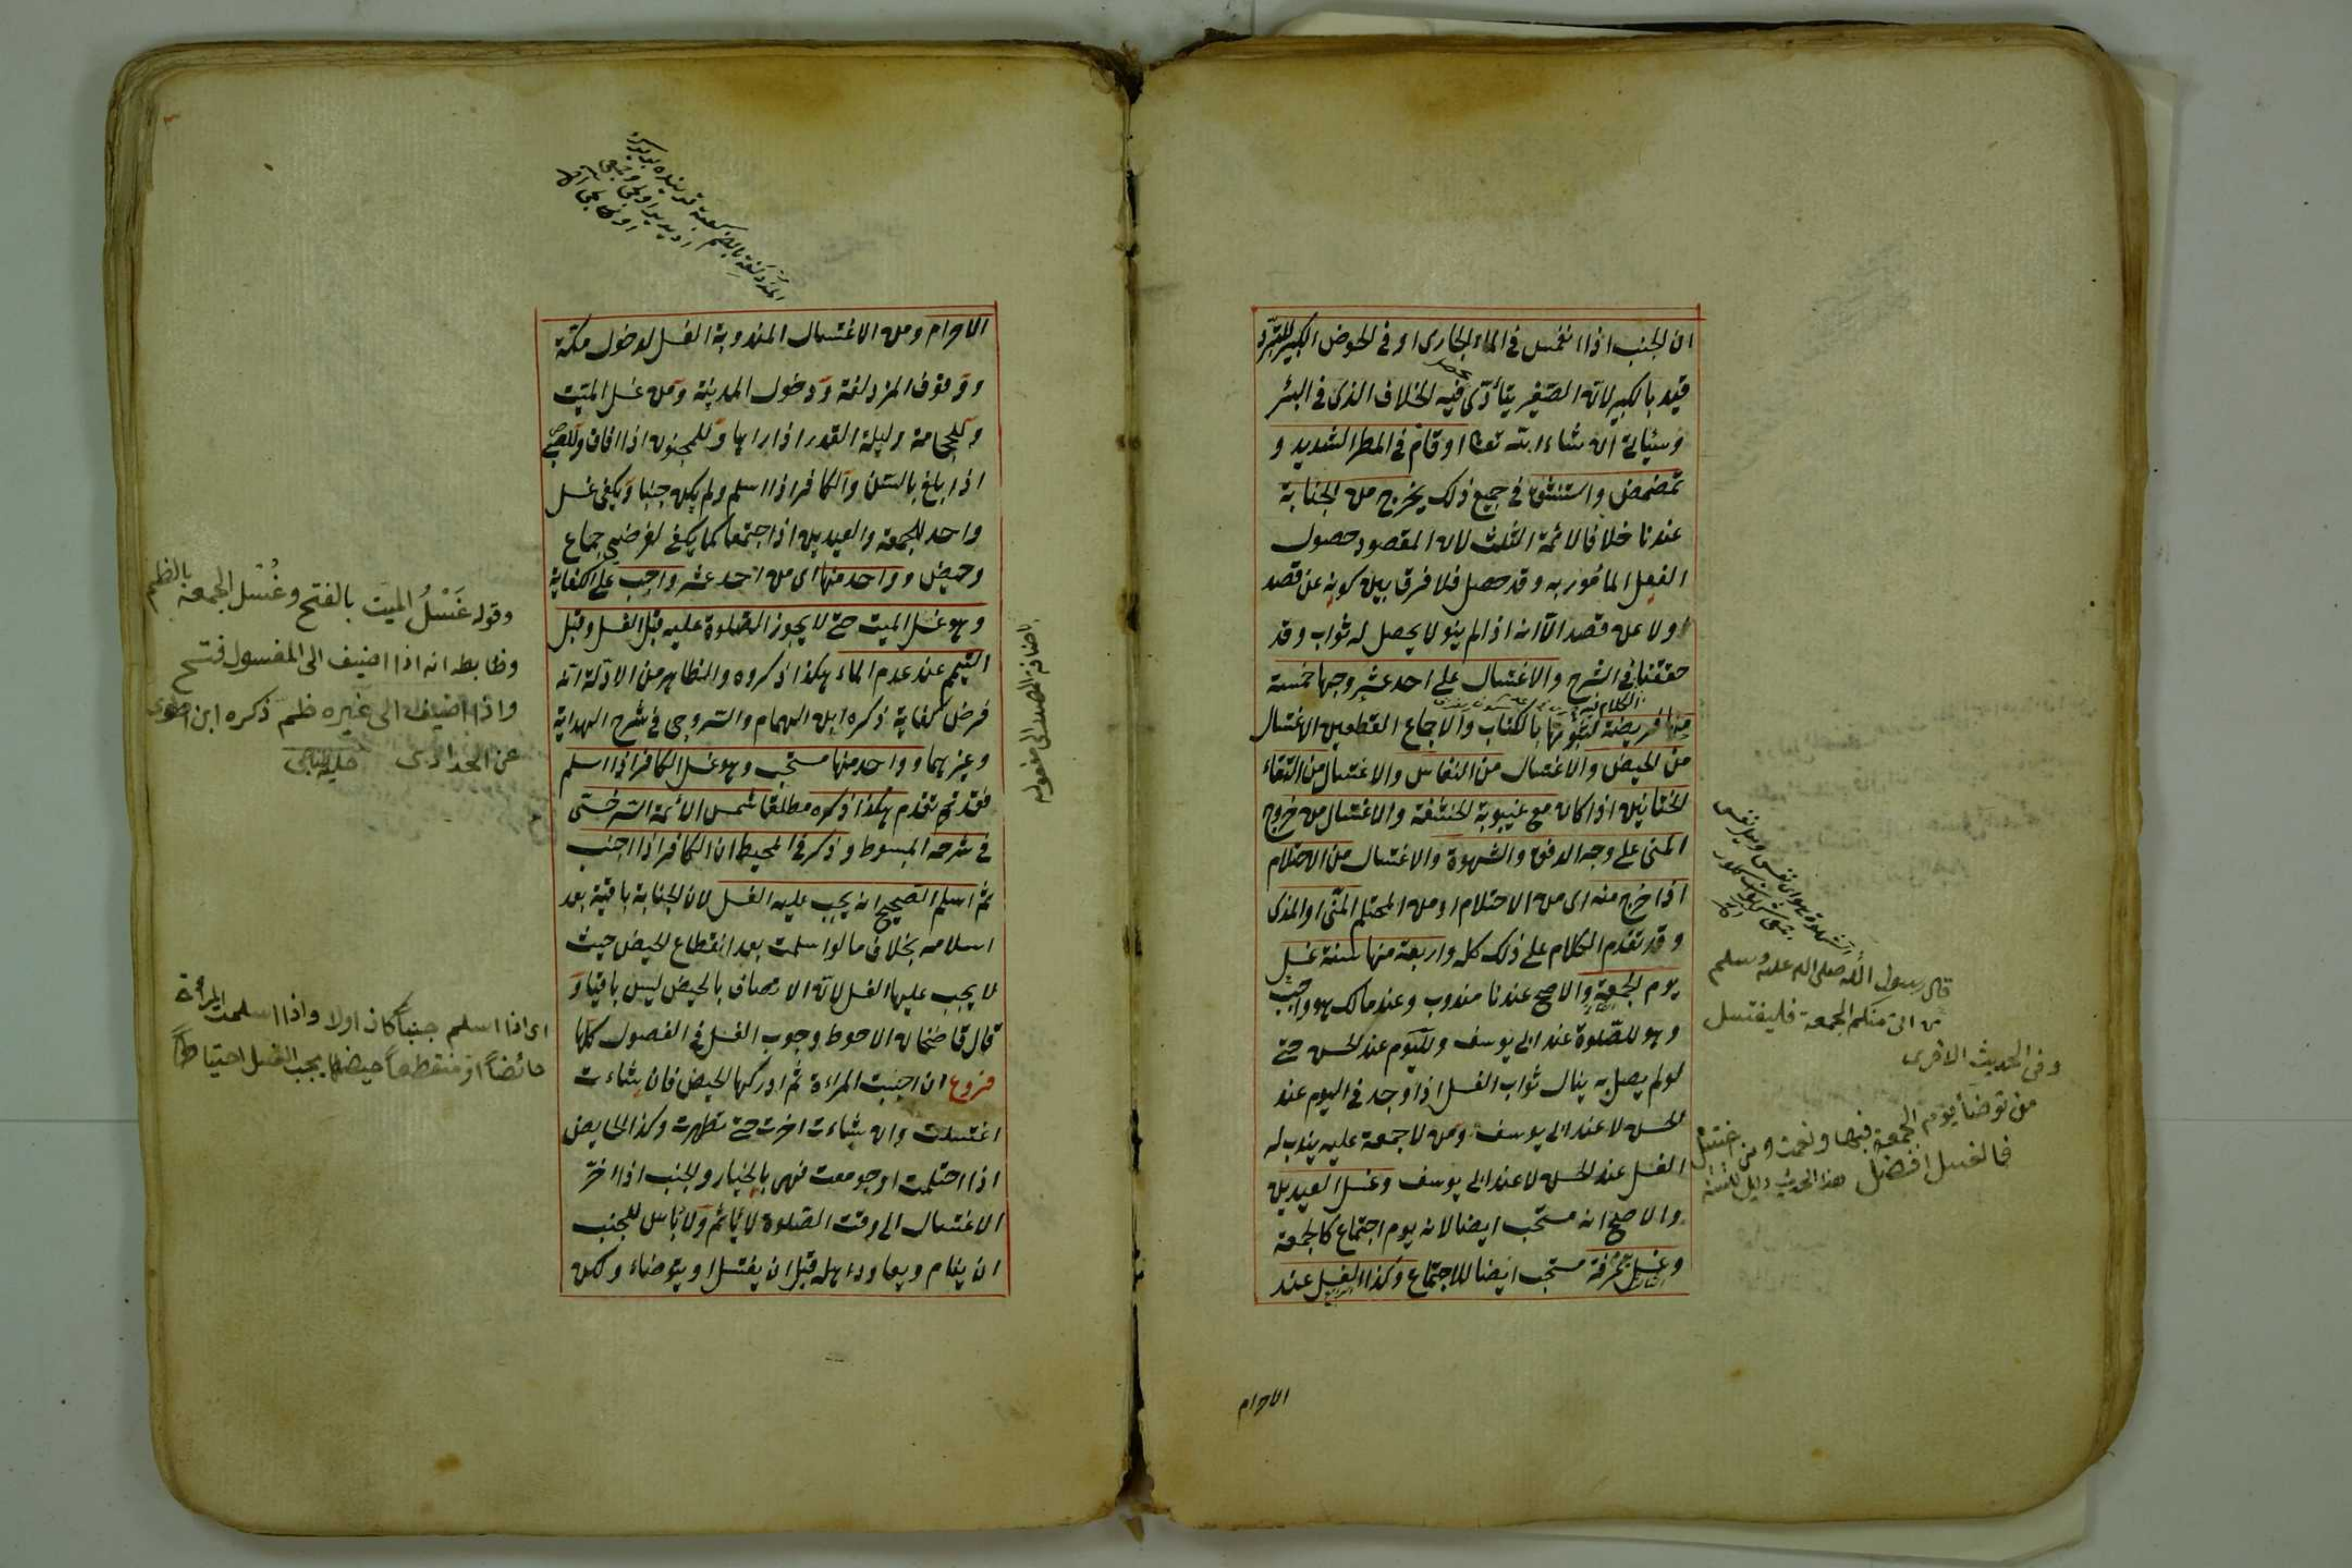 ان الجنب اذا انغمس فى الماء الجارى او فى الحوض الكبير للتبرد
قيد بالكبير لان الصغير يتأدى فيه الخلاف الذى فى البئر
وسيأتى ان شاء الله تعا او قام فى المطر الشديد و
تمضمض واستنشق فى جميع ذلك يخرج من الجنابة
عندنا خلافا لائمة الثلث لان المقصود حصول
الفعل المأمور به وقد حصل فلا فرق بين كونه عن قصد
او لا عن قصد الا انه اذا لم ينو لا يحصل له ثواب وقد
حققنا فى الشرح والاغتسال على احد عشر وجها خمسة
منها فريضة لثبوتها بالكتاب والاجماع القطعيين الاغتسال
من الحيض والاغتسال من النفاس والاغتسال من التقاء
الختانين اذا كان مع غيبوبة الحشفة والاغتسال من خروج
المنى على وجه الدفق والشهوة والاغتسال من الاحتلام
اذا خرج منه اى من الاحتلام او من المحتلم المنى او المذى
وقد تقدم الكلام على ذلك كله واربعة منها سنة غسل
يوم الجمعة والاصح عندنا مندوب وعند مالك هو واجب
وهو للصلوة عند ابى يوسف ولليوم عند الحسن حتى
لو لم يصل به ينال ثواب الغسل اذا وجد فى اليوم عند
الحسن لا عند ابى يوسف ومن لا جمعة عليه يندب له
الغسل عند الحسن لا عند ابى يوسف وغسل العيدين
والاصح انه مستحب ايضا لانه يوم اجتماع كالجمعة
وغسل عرفة مستحب ايضا للاجتماع وكذا الغسل عند
قال رسول الله صلى الله عليه وسلم
من اتى منكم الجمعة فليغتسل
وفى الحديث الاخرى
من توضأ يوم الجمعة فبها ونعمت ومن اغتسل
فالغسل افضل هذا الحديث دليل للسنة
الاحرام
الاحرام ومن الاغتسال المندوبة الغسل لدخول مكة
ووقوف المزدلفة ودخول المدينة ومن غسل الميت
وللحجامة وليلة القدر اذا راها وللمجنون اذا افاق وللصبى
اذا بلغ بالسن والكافر اذا اسلم ولم يكن جنبا ويكفى غسل
واحد للجمعة والعيدين اذا اجتمعا كما يكفى لفرضى جماع
وحيض وواحد منها اى من احد عشر واجب على الكفاية
وهو غسل الميت حتى لا يجوز الصلوة عليه قبل الغسل وقبل
التيمم عند عدم الماء هكذا ذكروه والظاهر من الادلة انه
فرض كفاية ذكره ابن الهمام والسروجى فى شرح الهداية
وغيرهما وواحد منها مستحب وهو غسل الكافر اذا اسلم
فقد تقدم هكذا ذكره مطلقا شمس الائمة السرخسى
فى شرحه المبسوط وذكر فى المحيط ان الكافر اذا اجنب
ثم اسلم الصحيح انه يجب عليه الغسل لان الجنابة باقية بعد
اسلامه بخلاف ما لو اسلمت بعد انقطاع الحيض حيث
لا يجب عليها الغسل لان الاتصاف بالحيض ليس باقيا و
قال قاضخان الاحوط وجوب الغسل فى الفصول كلها
فروع ان اجنبت المراءة ثم ادركها الحيض فان شاءت
اغتسلت وان شاءت اخرت حتى تطهرت وكذا الحايض
اذا احتلمت او جومعت فهى بالخيار والجنب اذا اخر
الاغتسال الى وقت الصلوة لا يأثم ولا بأس للجنب
ان ينام ويعاود اهله قبل ان يغتسل او يتوضاء ولكن
باضافة المصدر الى مفعوله
وقوله غَسْلُ الميت بالفتح وغُسْل الجمعة بالظم
وظابطه انه اذا اضيف الى المغسول فتح
واذا اضيف الى غيره ظم ذكره ابن
عن الحدادى
اى اذا اسلم جنباً كان اولا واذا اسلمت المرأة
حائضاً او منقطعاً حيضها يجب الغسل احتياطاً